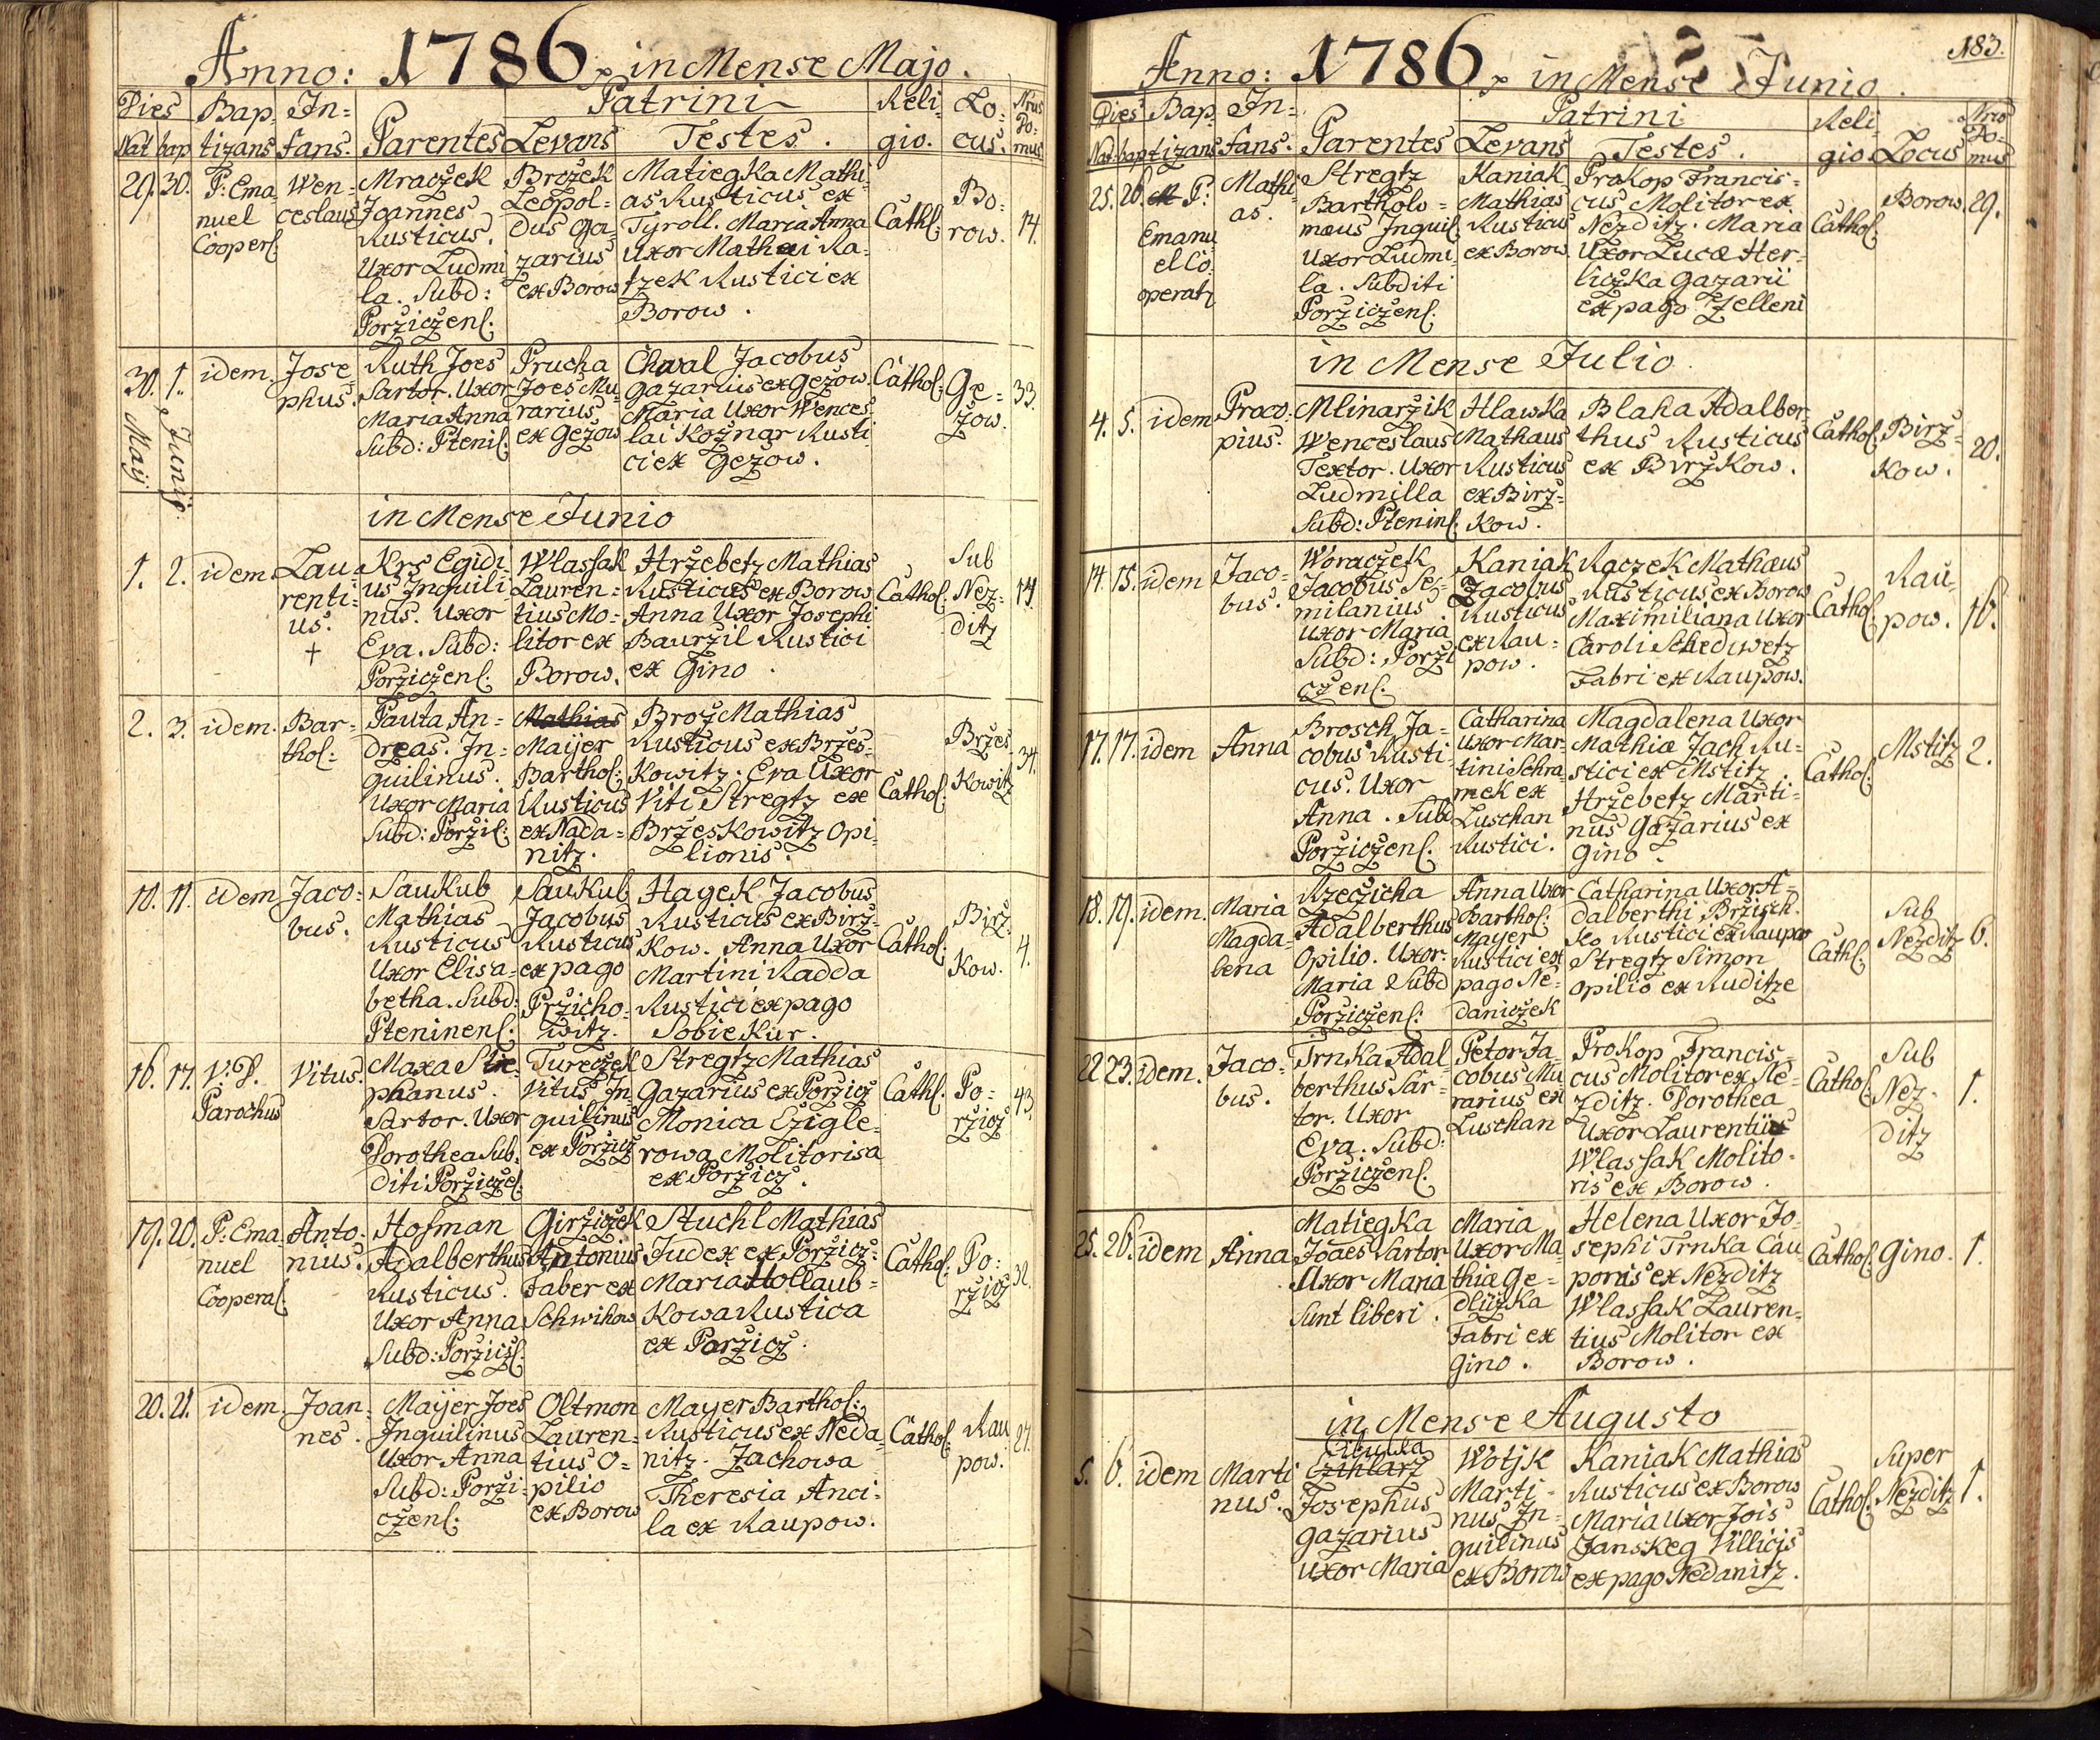 Anno: 1786 in Mense Majo.
Dies Bap= In= Patrini Reli= Lo= Nrus
Nat bap tizans fans. Parentes Levans Testes. gio. cus. Do=
mus
29. 30. P: Ema
nuel
Cooperſ.
Wen=
ceslaus
Mraczek
Joannes
Rusticus.
Uxor Ludmi
la. Subd:
Poržiczenſ.
Brožek
Leopol=
dus Ga=
zarius
ex Borow
Matiegka Mathi=
as Rusticus ex
Tyroll. Maria Anna
Uxor Mathæi Ra=
tzek Rustici ex
Borow.
Cathl:
Bo=
row.
14.
30. 1.
Maij Junij
idem
Jose
phus.
Ruth Joes
Sartor. Uxor
Maria Anna
Subd: Pteniſ.
Prucha
Joes Mu
rarius
ex Gezow
Chwal Jacobus
Gazarius ex Gezow.
Maria Uxor Wences
lai Kožnar Rusti
ci ex Gezow.
Cathol:
Ge=
zow.
33.
in Mense Junio
1. 2. idem.
Lau=
renti=
us.
†
Krs Egidi
us Inquili
nus. Uxor
Eva. Subd:
Porziczenſ.
Wlassak
Lauren=
tius Mo=
litor ex
Borow.
Hržebetz Mathias
Rusticus ex Borow
Anna Uxor Josephi
Baurzil Rustici
ex Gino.
Cathol.
Sub
Nez=
ditz
14.
2. 3. idem.
Bar=
thol:
Pauta An=
dreas. In=
quilinus.
Uxor Maria
Subd: Poržiſ:
Mathias
Maijer
Barthol:
Rusticus
ex Nada=
nitz.
Brož Mathias
Rusticus ex Bržes=
kowitz. Eva Uxor
Viti Stregtz ex
Brzeskowitz Opi
lionis.
Cathol:
Bržes
kowitz
34.
10. 11. idem
Jaco=
bus.
Saukub
Mathias
Rusticus
Uxor Elisa=
betha. Subd:
Pteninenſ.
Saukub
Jacobus
Rusticus
ex pago
Pržicho=
witz.
Hagek Jacobus
Rusticus ex Birž=
kow. Anna Uxor
Martini Kadda
Rustici ex pago
Sobiekur.
Cathol:
Birž=
kow.
4.
16. 17. V: D.
Parochus
Vitus.
Maxa Ste=
phanus.
Sartor. Uxor
Dorothea Sub.
diti Poržiczeſ.
Tureczek
Vitus In=
quilinus
ex Poržicz
Stregtz Mathias
Gazarius ex Poržicz
Monica Czigle=
rowa Molitorisa
ex Poržicz.
Cathl.
Po=
ržicz
43.
19. 20. P: Ema=
nuel
Cooperaſ.
Anto=
nius.
Hofman
Adalberthus
Rusticus.
Uxor Anna
Subd: Poržicſ.
Girziczek
Antonius
Faber ex
Schwihow
Stuchl Mathias
Judex ex Poržicz.
Maria Hollaub=
kowa Rustica
ex Poržicz.
Cathol:
Po=
ržicz
32.
20. 21. idem.
Joan=
nes.
Maijer Joes
Inquilinus
Uxor Anna
Subd: Porži=
czenſ.
Oltmon
Lauren=
tius O=
pilio
ex Borow
Mayer Barthol:
Rusticus ex Neda=
nitz. Jachowa
Theresia Anci=
la ex Raupow.
Cathol.
Rau
pow.
27.
Anno: 1786 in Mense Junio. 183.
Dies Bap= In= Patrini Reli= Nrus
Nat. bap tizans fans. Parentes Levans Testes. gio. Locus Do=
mus
25. 26. P:
Emanu
el Co=
operatz
Mathi
as.
Stregtz
Bartholo=
mæus Inquil.
Uxor Ludmi=
la. Subditi
Poržiczenſ.
Kaniak
Mathias
Rusticus
ex Borow
Prokop Francis=
cus Molitor ex
Nezditz. Maria
Uxor Lucæ Her=
liczka Gazarii
ex pago Zelleni
Cathol.
Borow.
29.
in Mense Julio
4. 5. idem
Proco.
pius.
Mlinaržik
Wenceslaus
Textor. Uxor
Ludmilla
Subd: Pteninſ.
Hlawka
Mathæus
Rusticus
ex Birž=
kow.
Blaha Adalber=
thus Rusticus
ex Biržkow.
Cathol.
Birž=
kow.
20.
14. 15. idem
Jaco=
bus.
Woraczek
Jacobus Se=
milanius
Uxor Maria
Subd: Porži
czenſ.
Kaniak
Jacobus
Rusticus
ex Rau=
pow.
Raczek Mathæus
Rusticus ex Borow
Maximiliana Uxor
Caroli Schediwetz
Fabri ex Raupow.
Cathol.
Rau=
pow.
16.
17. 17. idem
Anna
Brosch Ja=
cobus Rusti=
cus. Uxor
Anna. Subd
Poržiczenſ.
Catharina
Uxor Mar=
tini Schra=
mek ex
Luschan
Rustici.
Magdalena Uxor
Mathiæ Jach Ru=
stici ex Mstitz.
Hržebetz Marti=
nus Gazarius ex
Gino.
Cathol:
Mstitz
2.
18. 19. idem.
Maria
Magda=
lena
Rzeczicha
Adalberthus
Opilio. Uxor
Maria Subd
Poržiczenſ:
Anna Uxor
Barthol:
Mayer
Rustici ex
pago Ne=
daniczek
Catharina Uxor A=
dalberthi Bržisch=
ko Rustici ex Raupow
Stregtz Simon
Opilio ex Ruditze
Cathl.
Sub
Nezditz
6.
22. 23. idem.
Jaco=
bus.
Trnka Adal
berthus Sar=
tor. Uxor
Eva. Subd:
Poržiczenſ.
Petor Ja=
cobus Mu
rarius ex
Luschan
Prokop Francis=
cus Molitor ex Ne=
zditz. Dorothea
Uxor Laurentii
Wlassak Molito=
ris ex Borow.
Cathol.
Sub
Nez=
ditz
1.
25. 26. idem
Anna
Matiegka
Joaes Sartor
Uxor Maria
sunt liberi.
Maria
Uxor Ma=
thiæ Ge=
dliczka
Fabri ex
Gino.
Helena Uxor Jo=
sephi Trnka Cau
ponis ex Nezditz
Wlassak Lauren=
tius Molitor ex
Borow.
Cathol.
Gino.
1.
in Mense Augusto
5. 6. idem
Marti
nus.
Cibulka
Czihlarz
Josephus
Gazarius
Uxor Maria
Wotjk
Marti=
nus In=
quilinus
ex Borow
Kaniak Mathias
Rusticus ex Borow
Maria Uxor Jois
Janskeg Villicis
ex pago Nedanitz.
Cathol.
Super
Nezditz
1.